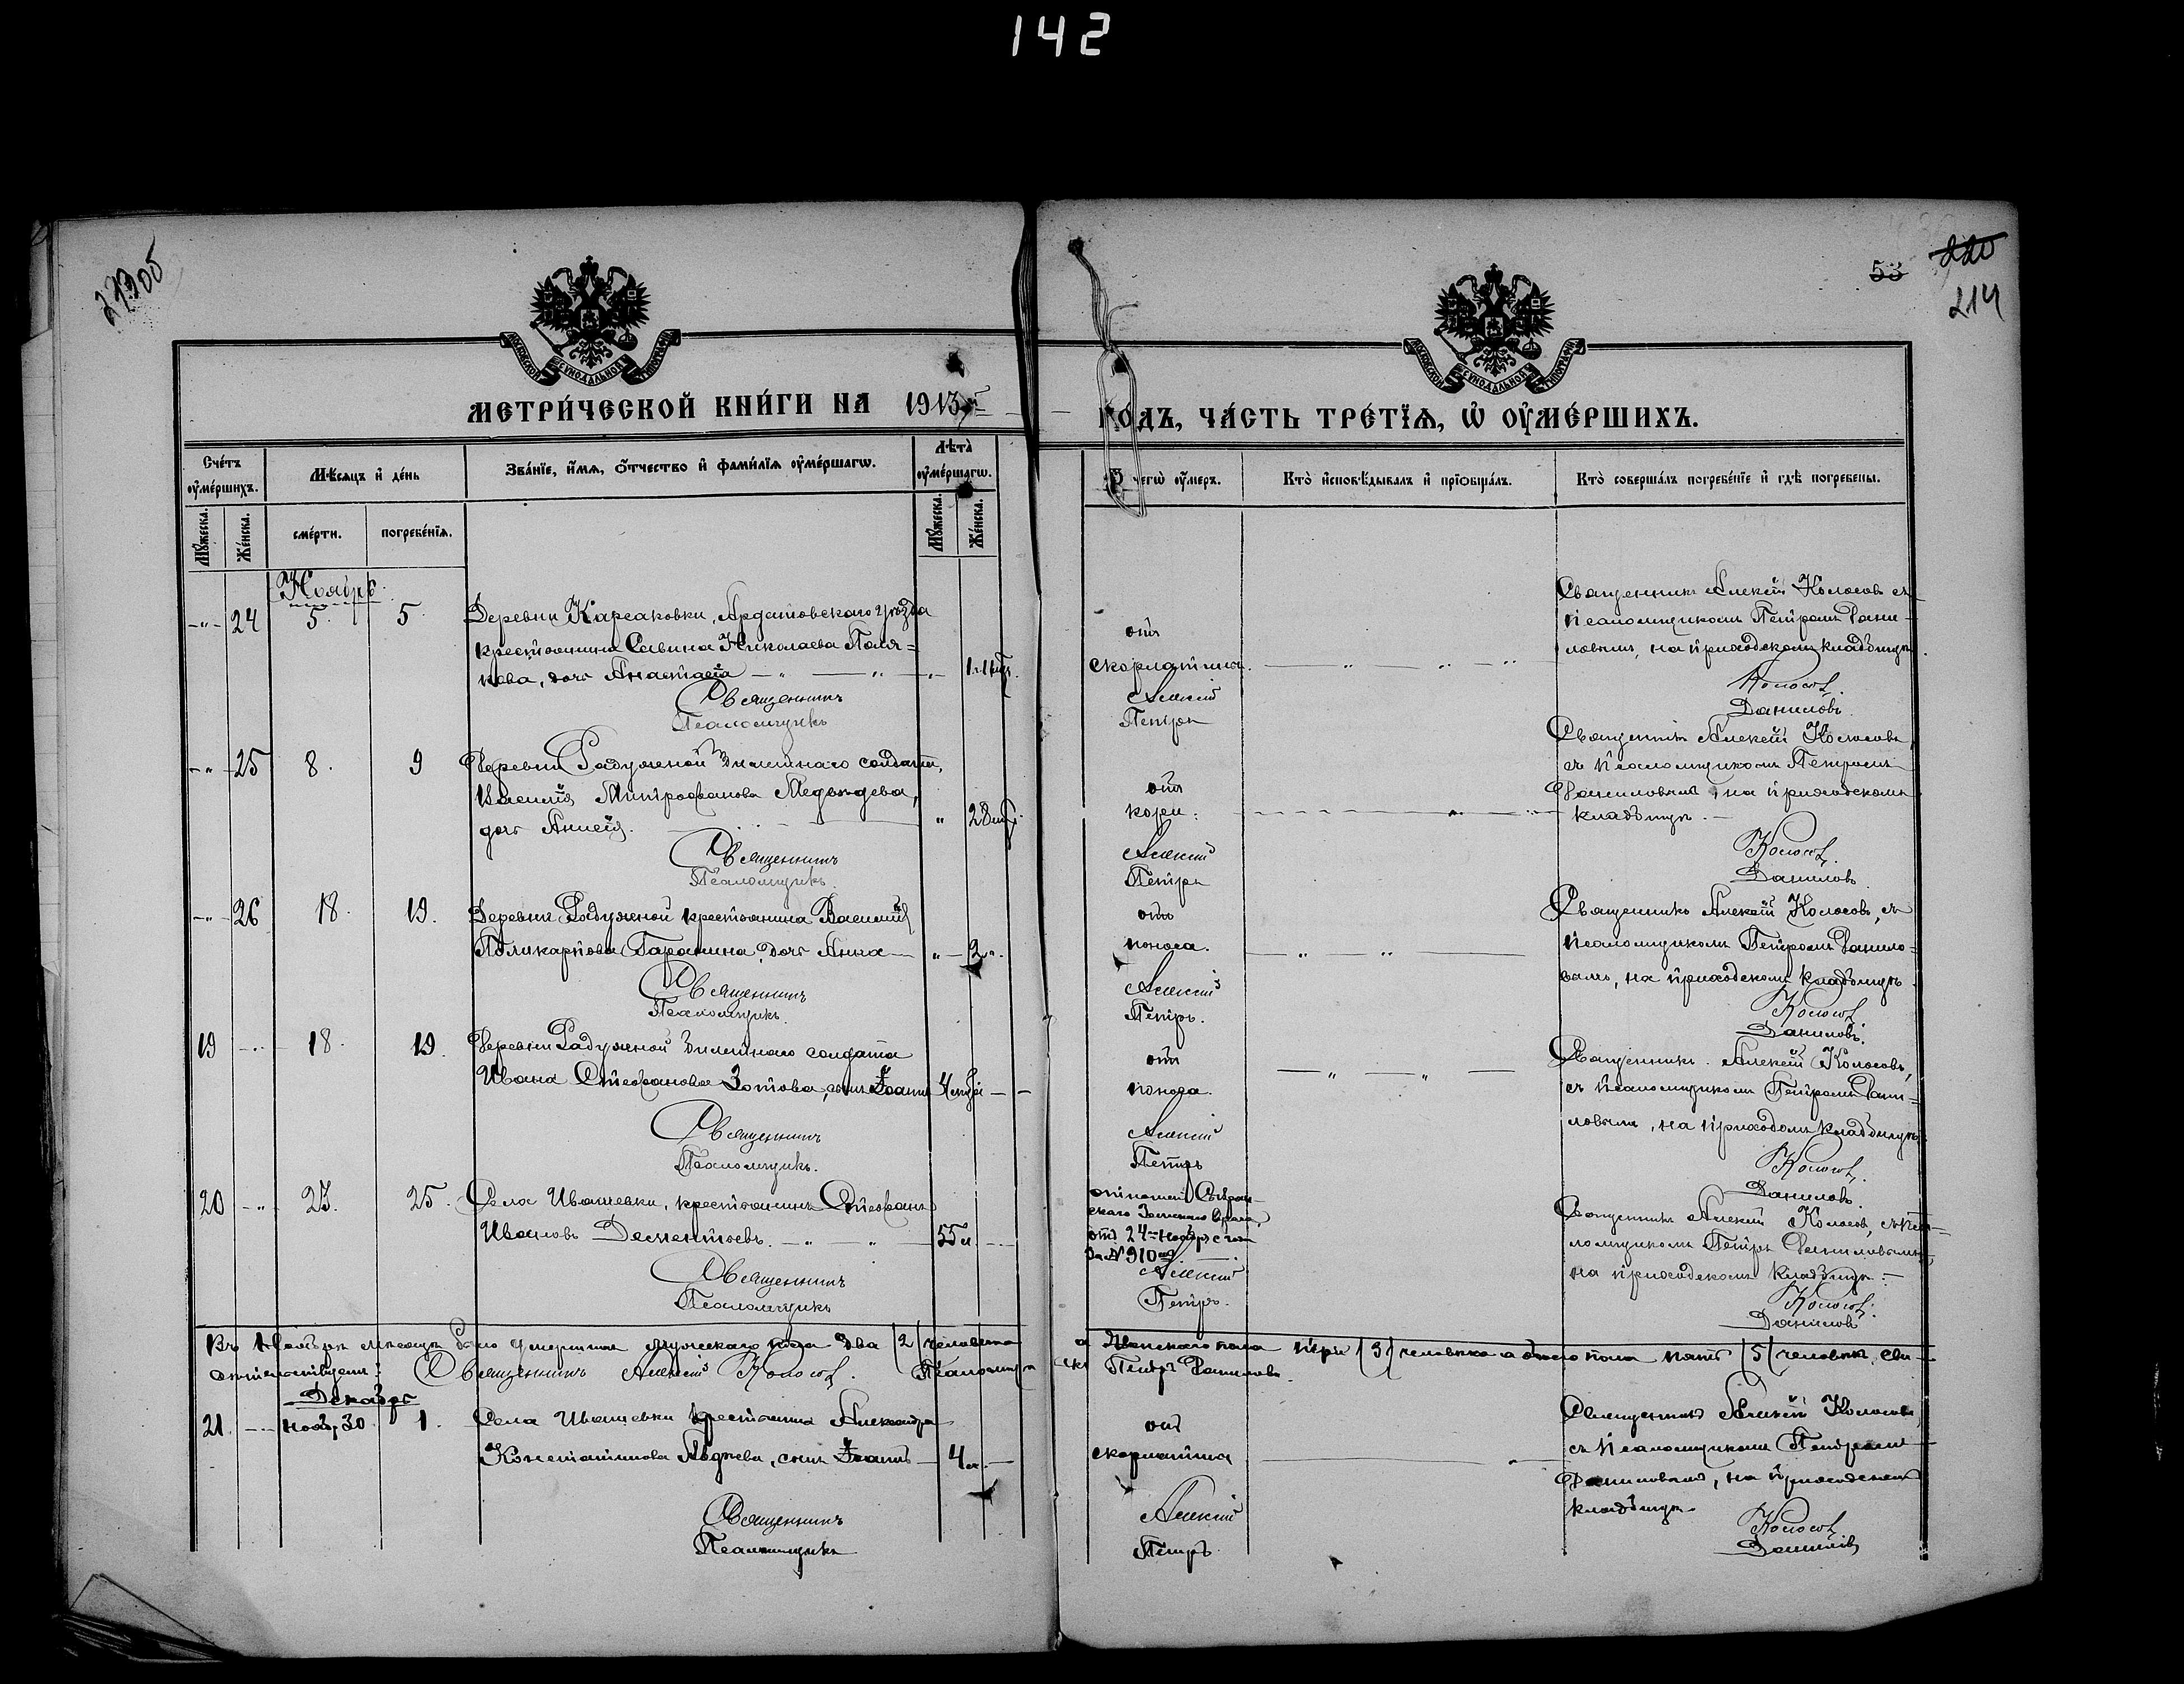 142
53
220
214
МЕТРИ́ЧЕСКОЙ КНИ́ГИ НА 1913
ГОДЪ, ЧА́СТЬ ТРЕ́ТЇѦ, Ѡ ОУ҆МЕ́РШИХЪ.
МОСКОВСКОЙ СѴНОДАЛЬНОЙ ТИПОГРАФІИ
МОСКОВСКОЙ СѴНОДАЛЬНОЙ ТИПОГРАФІИ
Сче́тъ оу҆ме́ршихъ.
Мѣ́сяцъ и҆ де́нь
Зва́нїе, и҆́мѧ, ѻ҆́тчество и҆ фами́лїѧ оу҆ме́ршагѡ.
Лѣ́та оу҆ме́ршагѡ.
чегѡ̀ оу҆́меръ.
Кто̀ и҆сповѣ́дывалъ и҆ прїѡбща́лъ.
Кто̀ соверша́лъ погребе́нїе и҆ гдѣ̀ погребены.
Му́жеска.
Же́нска.
сме́рти.
погребе́нїѧ.
Му́жеска.
Же́нска.
Ноябрь
24 5. 5.
Деревни Карсаковки, Ардатовскаго уѣзда
крестьянина Савина Николаева Поля=
кова, дочь Анастасія
Священникъ
Псаломщикъ
отъ
скарлатины.
Алексій
Петръ
Священникъ Алексій Колосовъ съ
псаломщикомъ Петромъ Дани-
ловымъ, на приходскомъ кладбищѣ.
Колосов.
Даниловъ.
25 8. 9
Деревни Радужной запаснаго солдата,
Василія Митрофанова Медвѣдева,
дочь
Священникъ
Псаломщикъ.
отъ
кори.
Алексій
Петръ
Священникъ Алексій Колосовъ
съ псаломщикомъ Петромъ
Даниловымъ, на приходскомъ
кладбищѣ.
Колосов.
Даниловъ.
26 18. 19.
Деревни Радужной крестьянина Василія
Поликарпова Гаранина, дочь Анна 2
Священникъ
Псаломщикъ.
отъ
поноса.
Алексій
Петръ.
Священникъ Алексій Колосовъ, съ
псаломщикомъ Петромъ Данило=
вымъ, на приходскомъ кладбищѣ
Колосов.
Даниловъ.
19 18. 19.
Деревни Радужной запаснаго солдата
Ивана Стефанова Зотова, сынъ Іоаннъ
Священникъ
Псаломщикъ.
отъ
поноса.
Алексій
Петръ
Священникъ Алексій Колосовъ,
съ псаломщикомъ Петромъ Дани=
ловымъ, на приходском кладбищѣ.
Колосов.
Даниловъ.
20 23. 25.
Села Ивашевки, крестьянинъ Стефанъ
Ивановъ Дементьевъ. 55 л.
Священникъ
Псаломщикъ
скаго Земскаго врача,
отъ 24 нояб. с. г.
за № 910
Алексій
Петръ.
Священникъ Алексій Колосовъ, съ пса-
ломщикомъ Петръ Даниловымъ
на приходскомъ кладбищѣ.
Колосов.
Даниловъ
Въ Ноябрѣ мѣсяцѣ было умершихъ мужескаго пола два /2/ человѣка
а женскаго пола три /3/ человѣка а обоего пола пять /5/ человѣкъ, сви-
Священникъ Алексій Колосов. Псаломщикъ
Петръ Даниловъ.
Декабрь
21. нояб. 30. 1.
Села Ивашевки крестьянина Александра
Константинова Авдѣева, сынъ Іоаннъ 4 л.
Священникъ
Псаломщикъ
отъ
скарлатины
Алексій
Петръ
Священникъ Алексій Колосовъ
съ псаломщикомъ Петромъ
Даниловымъ, на приходскомъ
кладбищѣ.
Колосов.
Даниловъ